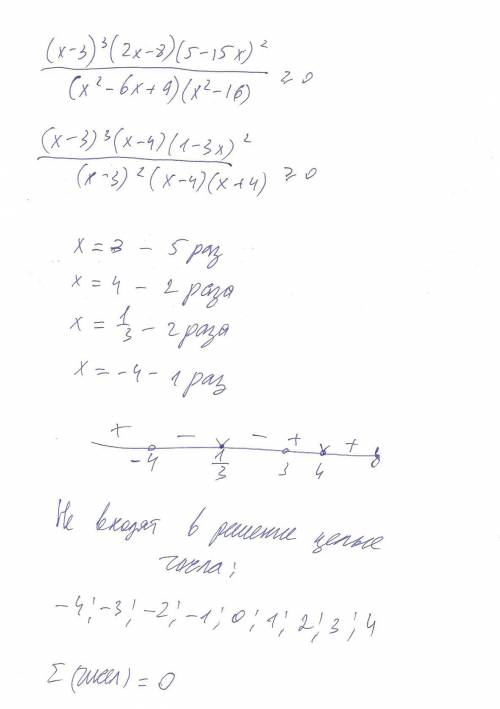 (x-3)³(2x-8)(5-15x)²
(x²-6x+9)(x²-16) ≥ 0
(x-3)³(x-4)(1-3x)²
(x-3)²(x-4)(x+4) ≥ 0
x = 3 - 5 раз
x = 4 - 2 раза
x = 1/3 - 2 раза
x = -4 - 1 раз
+ - - + +
-4 1/3 3 4
Не входят в решение целые
числа:
-4; -3; -2; -1; 0; 1; 2; 3; 4
Σ(чисел) = 0